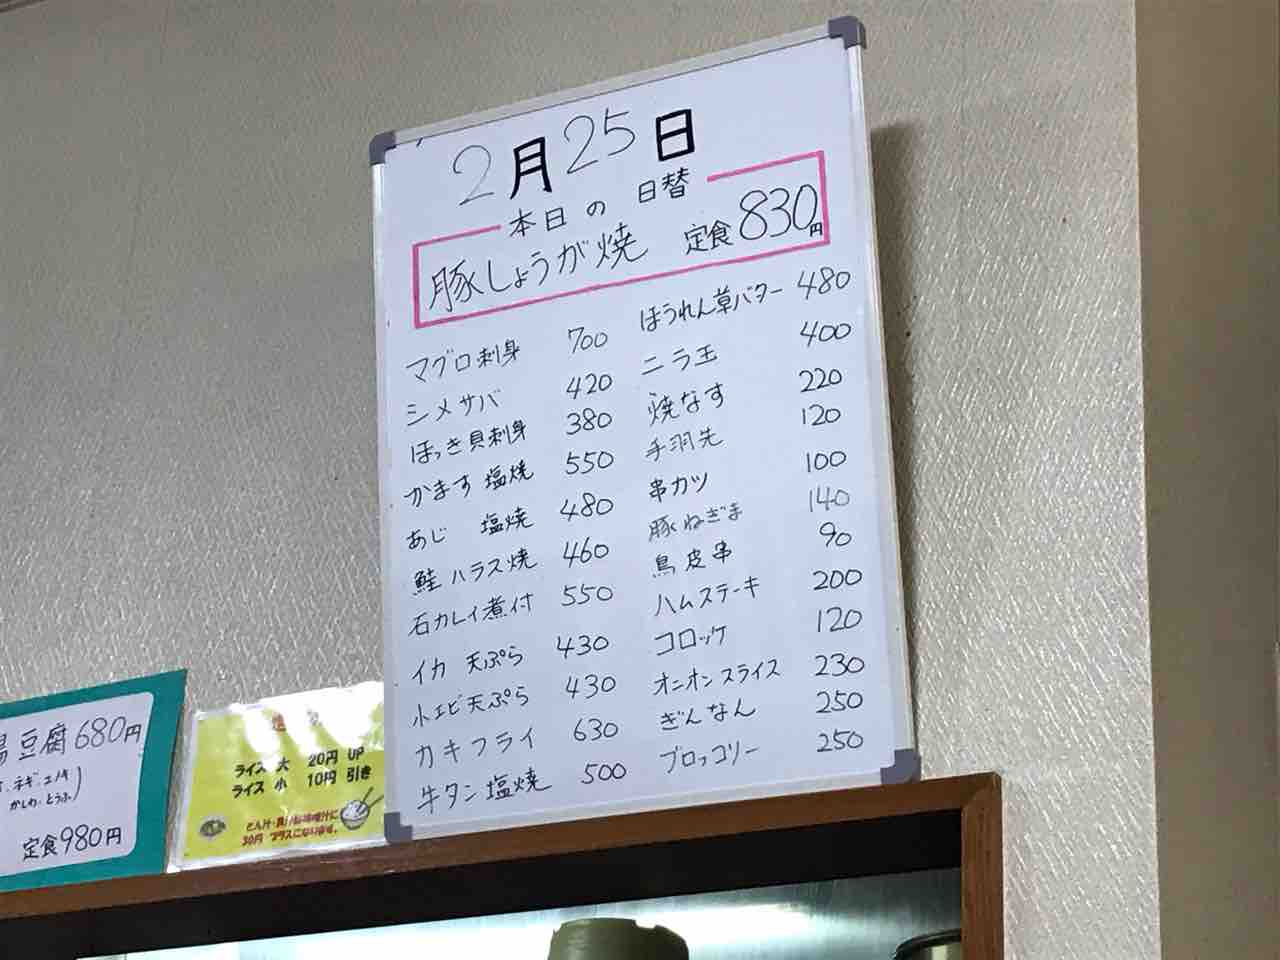 2月25日
本日の日替
豚しょうが焼 定食830円
マグロ刺身 700
シメサバ 420
ほっき貝刺身 380
かます塩焼 550
あじ 塩焼 480
鮭ハラス焼 460
石カレイ煮付 550
イカ天ぷら 430
小エビ天ぷら 430
カキフライ 630
牛タン塩焼 500
ほうれん草バター 480
ニラ玉 400
焼なす 220
手羽先 120
串カツ 100
豚ねぎま 140
鳥皮串 90
ハムステーキ 200
コロッケ 120
オニオンスライス 230
ぎんなん 250
ブロッコリー 250
豆腐680円
ネギ・エノキ
かしわ・とうふ)
定食980円
ライス 大 20円 UP
ライス 小 10円 引き
30円 プラスになります。